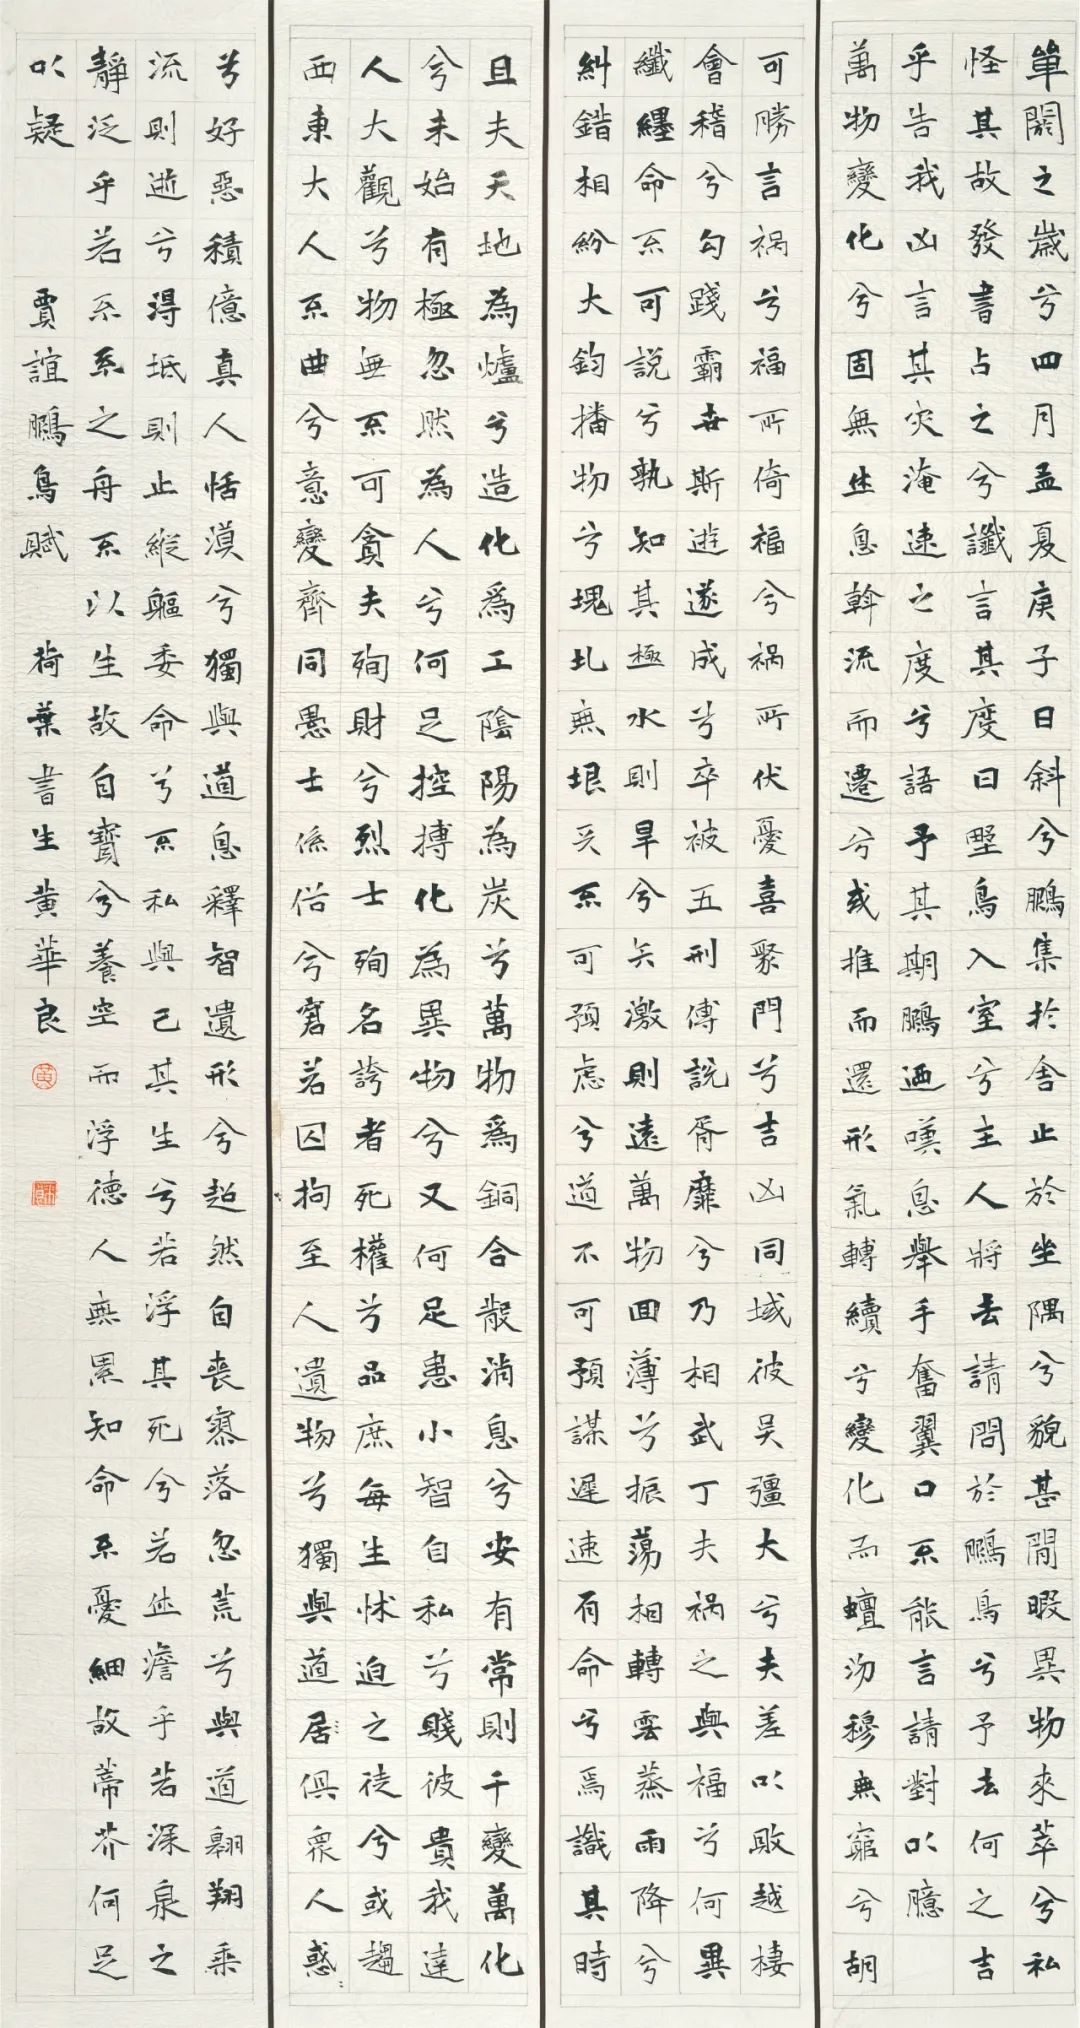 單閼之歲兮四月孟夏庚子日斜兮鵩集於舍止於坐隅兮貌甚閒暇異物來萃兮私
怪其故發書占之兮讖言其度曰野鳥入室兮主人將去請問於鵩鳥兮予去何之吉
乎告我凶言其灾淹速之度兮語予其期鵩迺嘆息舉手奮翼口不能言請對以臆
萬物變化兮固無休息斡流而遷兮或推而還形氣轉續兮變化而蟺沕穆無窮兮胡
可勝言祸兮福所倚福兮祸所伏憂喜聚門兮吉凶同域彼吴彊大兮夫差以敗越棲
會稽兮勾踐霸世斯遊遂成兮卒被五刑傅說胥靡兮乃相武丁夫祸之與福兮何異
纖纆命不可說兮孰知其極水則旱兮矢激則遠萬物回薄兮振蕩相轉雲蒸雨降兮
糾錯相紛大鈞播物兮塊圠無垠天不可預慮兮道不可預謀遲速有命兮焉識其時
且夫天地為爐兮造化為工陰陽為炭兮萬物為銅合散消息兮安有常則千變萬化
兮未始有極忽然為人兮何足控摶化為異物兮又何足患小智自私兮賤彼貴我達
人大觀兮物無不可貪夫殉財兮烈士殉名誇者死權兮品庶每生怵迫之徒兮或趨
西東大人不曲兮意變齊同愚士係俗兮窘若囚拘至人遺物兮獨與道居俱衆人惑
兮好惡積億真人恬漠兮獨與道息釋智遺形兮超然自喪寥落忽荒兮與道翱翔乘
流則逝兮得坻則止縱軀委命兮不私與己其生兮若浮其死兮若休澹乎若深泉之
靜泛乎若不系之舟不以生故自寶兮養空而浮德人無累知命不憂細故蒂芥何足
以疑 賈誼鵩鳥賦 荷葉書生黄華良
黄